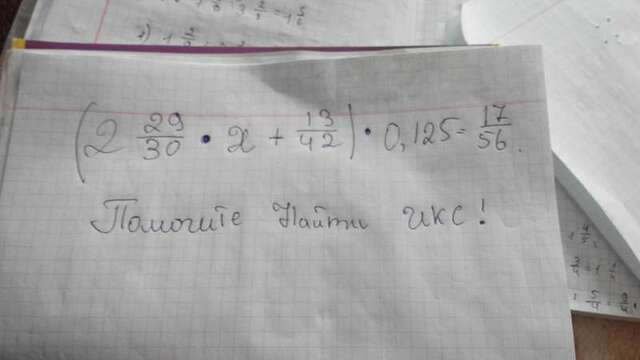 (2 29/30 · x + 13/42) · 0,125 = 17/56.
Помогите найти икс!